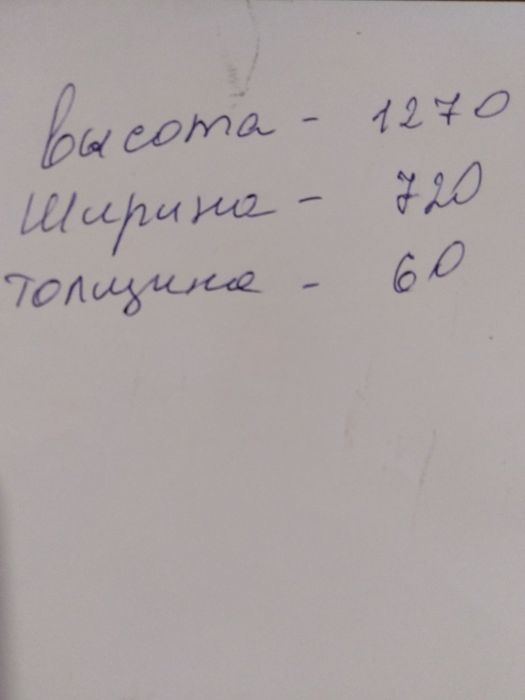 Высота - 1270
Ширина - 720
толщина - 60